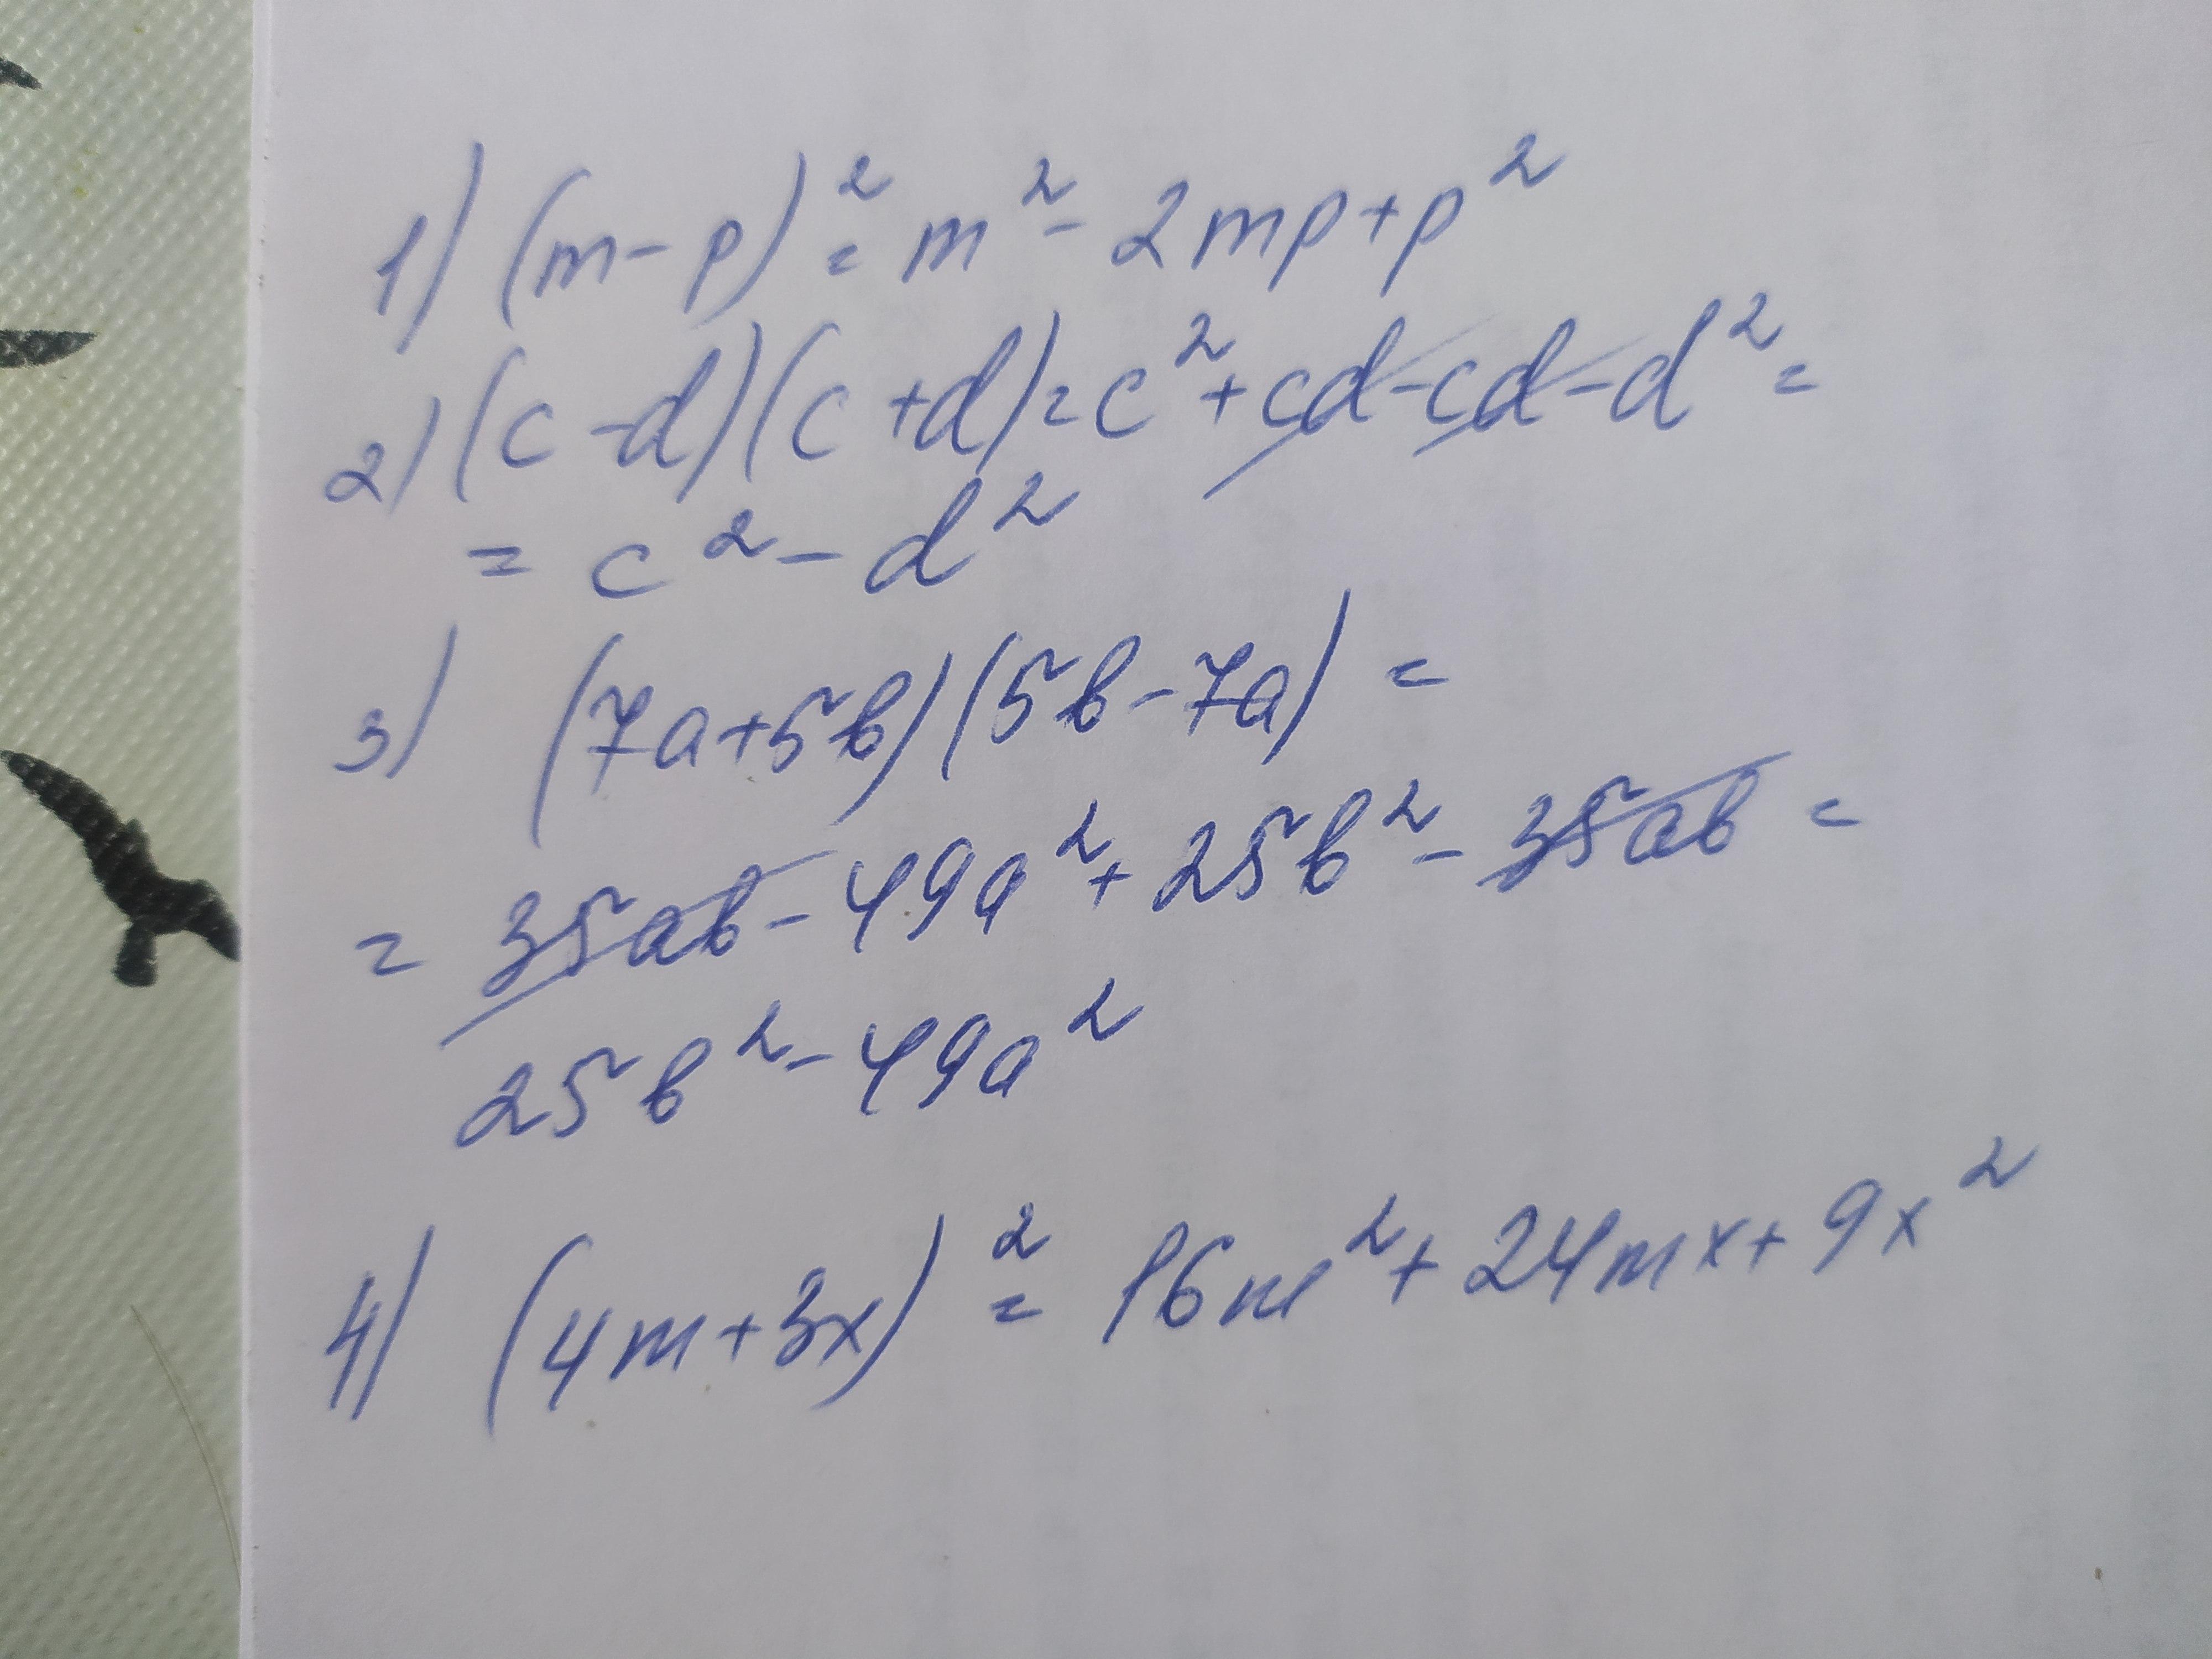 1) (m-p)²=m²-2mp+p²
2) (c-d)(c+d)=c²+cd-cd-d²=
=c²-d²
3) (7a+5b)(5b-7a)=
=35ab-49a²+25b²-35ab=
25b²-49a²
4) (4m+3x)²=16m²+24mx+9x²